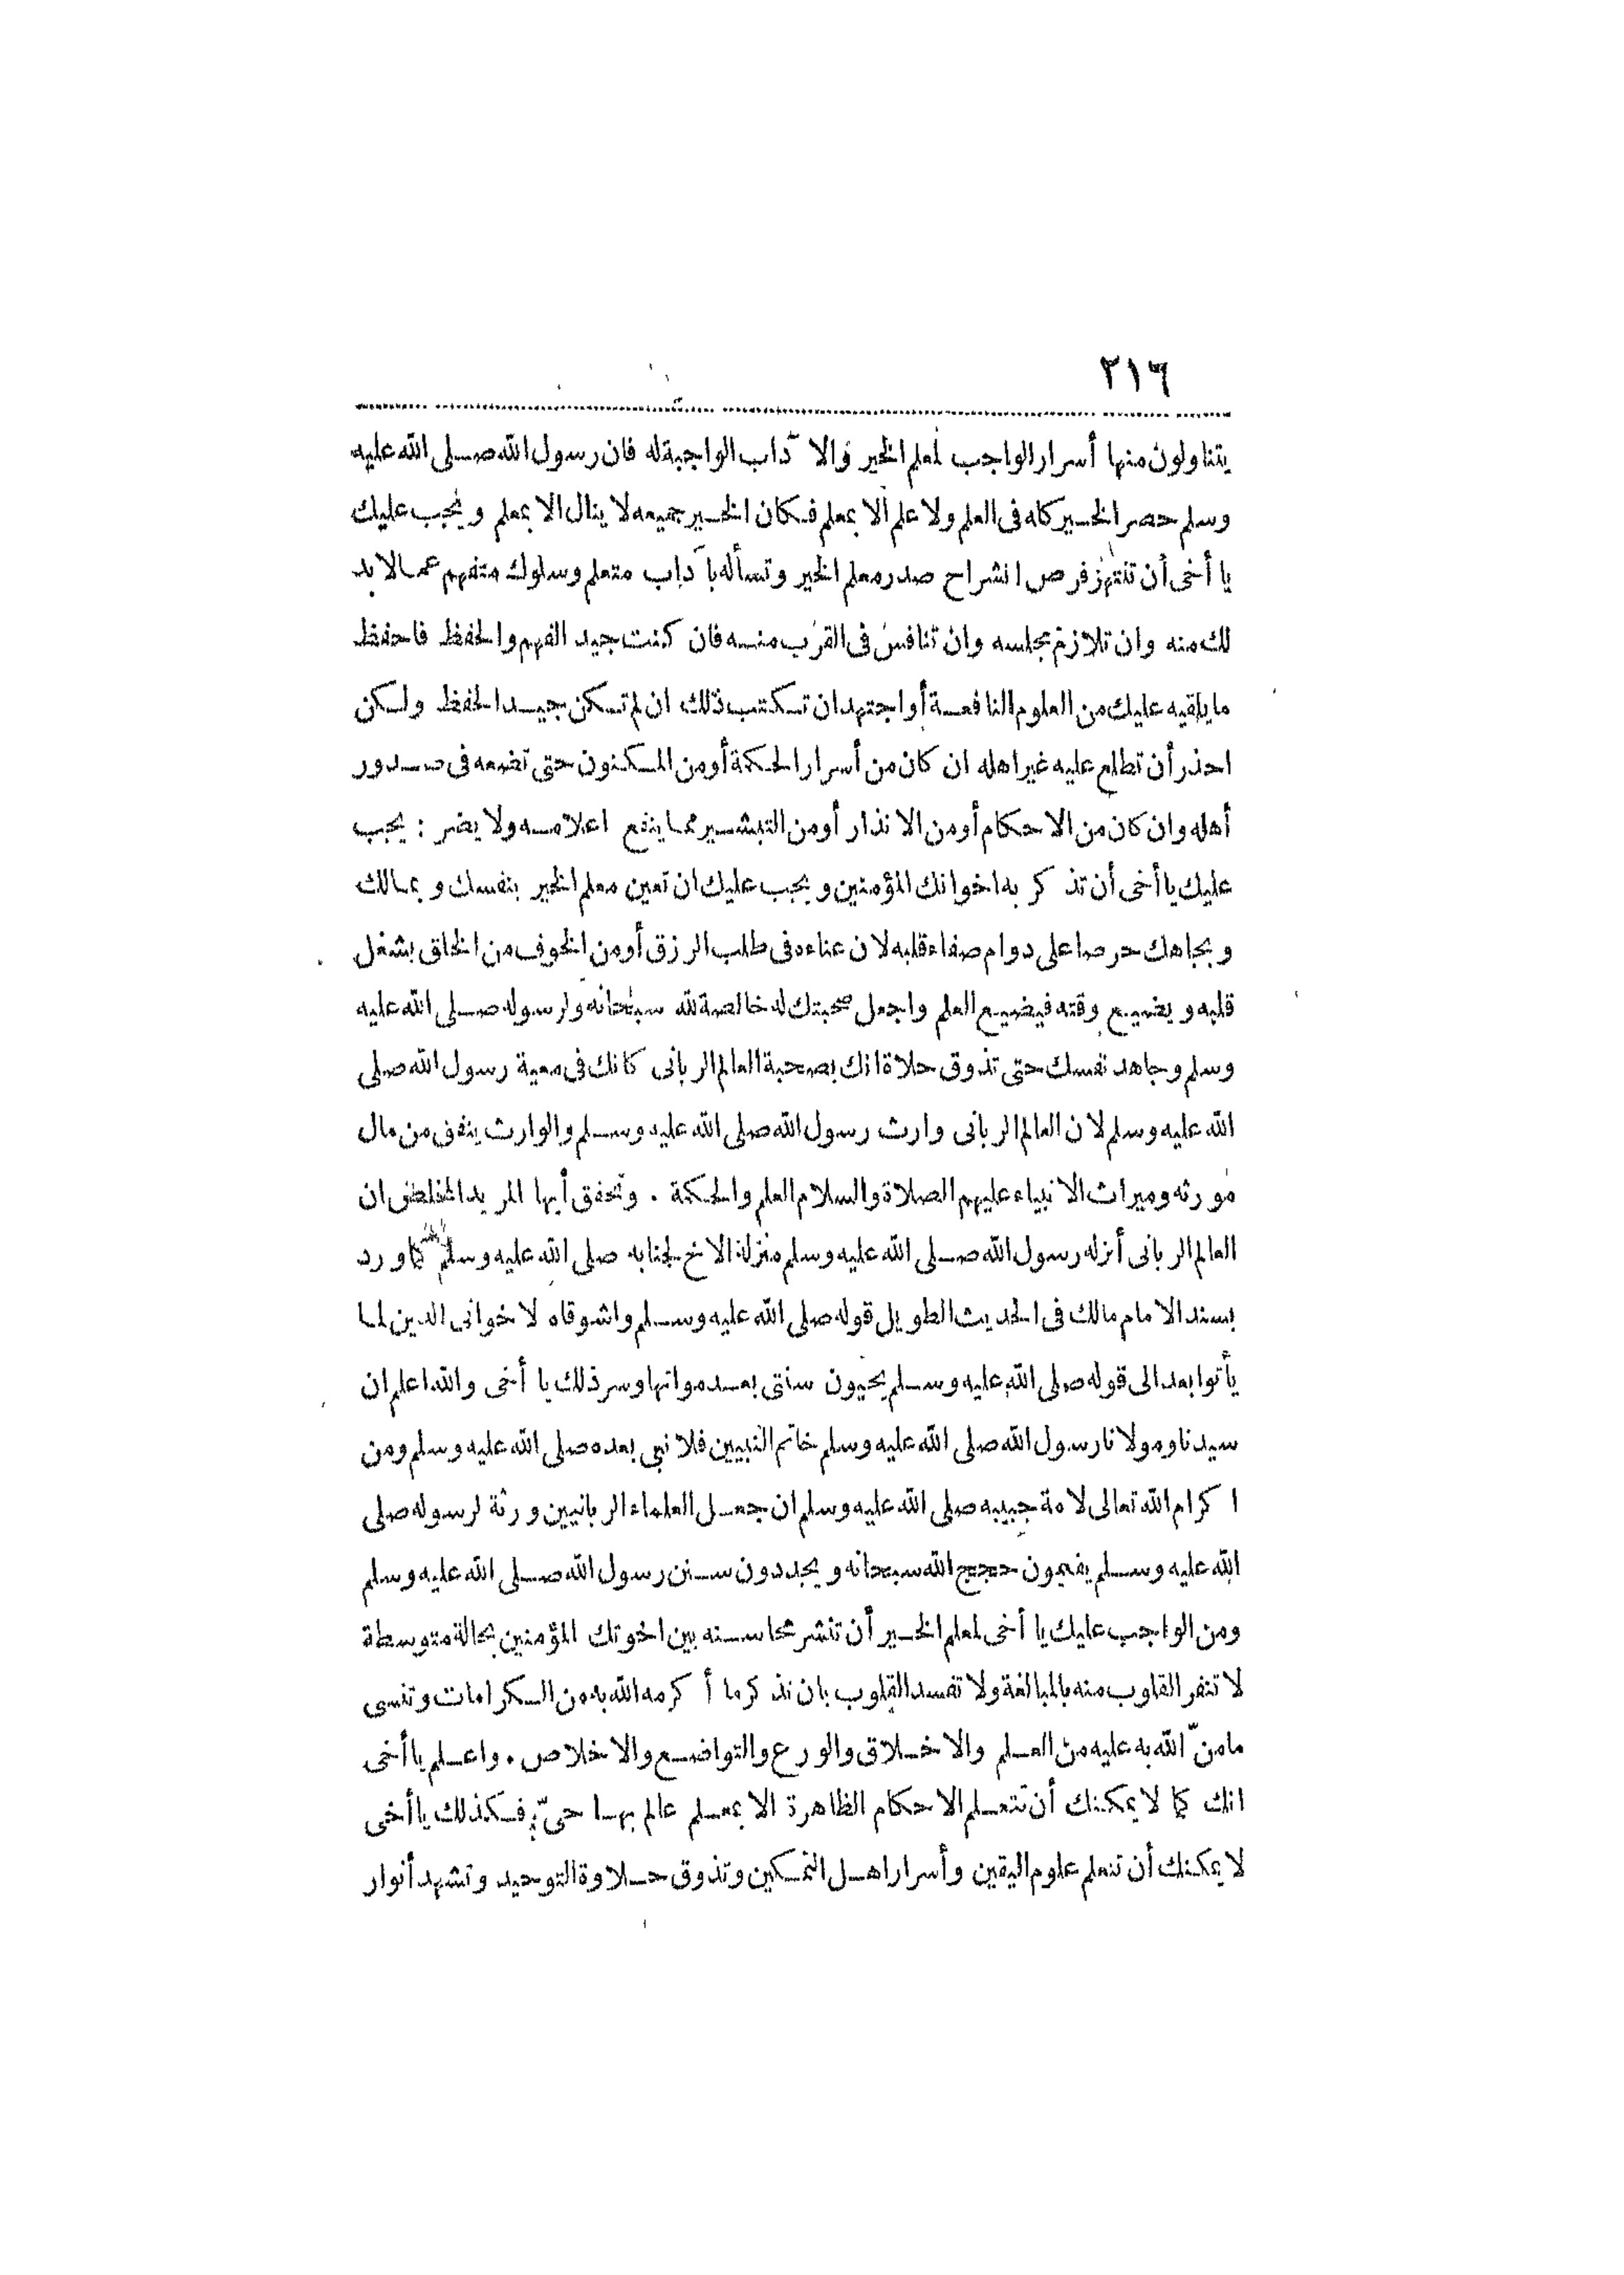 ٢١٦
يتناولون منها أسرار الواجب لمعلم الخير والآداب الواجبة له فان رسول الله صلى الله عليه
وسلم حصر الخير كله فى العلم ولا علم الا بمعلم فكان الخير جميعه لا ينال الا بمعلم ويجب عليك
يا أخى أن تنتهز فرص انشراح صدر معلم الخير وتسأله بآداب متعلم وسلوك متفهم عما لا بد
لك منه وان تلازم مجلسه وان تنافس فى القرب منه فان كنت جيد الفهم والحفظ فاحفظ
ما يلقيه عليك من العلوم النافعة أو اجتهد ان تكتب ذلك ان لم تكن جيد الحفظ ولكن
احذر أن تطلع عليه غير اهله ان كان من أسرار الحكمة أو من المكنون حتى تضعه فى صدور
أهله وان كان من الاحكام أو من الانذار أو من التبشير مما ينفع اعلامه ولا يضر : يجب
عليك يا أخى أن تذكر به اخوانك المؤمنين ويجب عليك ان تعين معلم الخير بنفسك وبمالك
وبجاهك حرصا على دوام صفاء قلبه لان عناءه فى طلب الرزق أو من الخوف من الخلق يشغل
قلبه ويضيع وقته فيضيع العلم واجعل صحبتك له خالصة لله سبحانه ولرسوله صلى الله عليه
وسلم وجاهد نفسك حتى تذوق حلاة انك بصحبة العالم الربانى كانك فى معية رسول الله صلى
الله عليه وسلم لان العالم الربانى وارث رسول الله صلى الله عليه وسلم والوارث ينفق من مال
مورثه وميراث الانبياء عليهم الصلاة والسلام العلم والحكمة . وتحقق أيها المريد المخلص ان
العالم الربانى أنزله رسول الله صلى الله عليه وسلم منزلة الاخ لجنابه صلى الله عليه وسلم كما ورد
بسند الامام مالك فى الحديث الطويل قوله صلى الله عليه وسلم واشوقاه لاخوانى الذين لما
يأتوا بعد الى قوله صلى الله عليه وسلم يحيون سنتى بعد مواتها وسر ذلك يا أخى والله اعلم ان
سيدنا ومولانا رسول الله صلى الله عليه وسلم خاتم النبيين فلا نبى بعده صلى الله عليه وسلم ومن
اكرام الله تعالى لامة حبيبه صلى الله عليه وسلم ان جعل العلماء الربانيين ورثة لرسوله صلى
الله عليه وسلم يقيمون حجج الله سبحانه ويجددون سنن رسول الله صلى الله عليه وسلم
ومن الواجب عليك يا أخى لمعلم الخير أن تنشر محاسنه بين اخوتك المؤمنين بحالة متوسطة
لا تنفر القلوب منه بالمبالغة ولا تفسد القلوب بان تذكر ما أكرمه الله به من الكرامات وتنسى
ما منّ الله به عليه من العلم والاخلاق والورع والتواضع والاخلاص . واعلم يا أخى
انك كما لا يمكنك أن تتعلم الاحكام الظاهرة الا بمعلم عالم بها حىّ فكذلك يا أخى
لا يمكنك أن تتعلم علوم اليقين وأسرار اهل التمكين وتذوق حلاوة التوحيد وتشهد أنوار